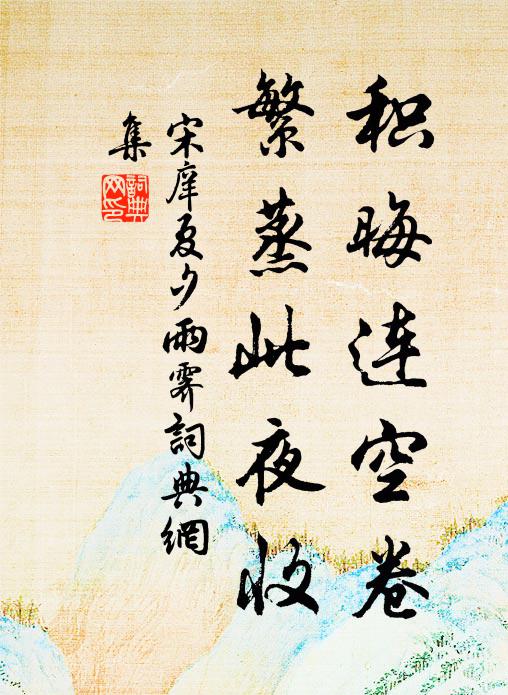 积晦连空卷
繁蒸此夜收
宋庠夏夕雨霁詞典網
集
詞典
网印